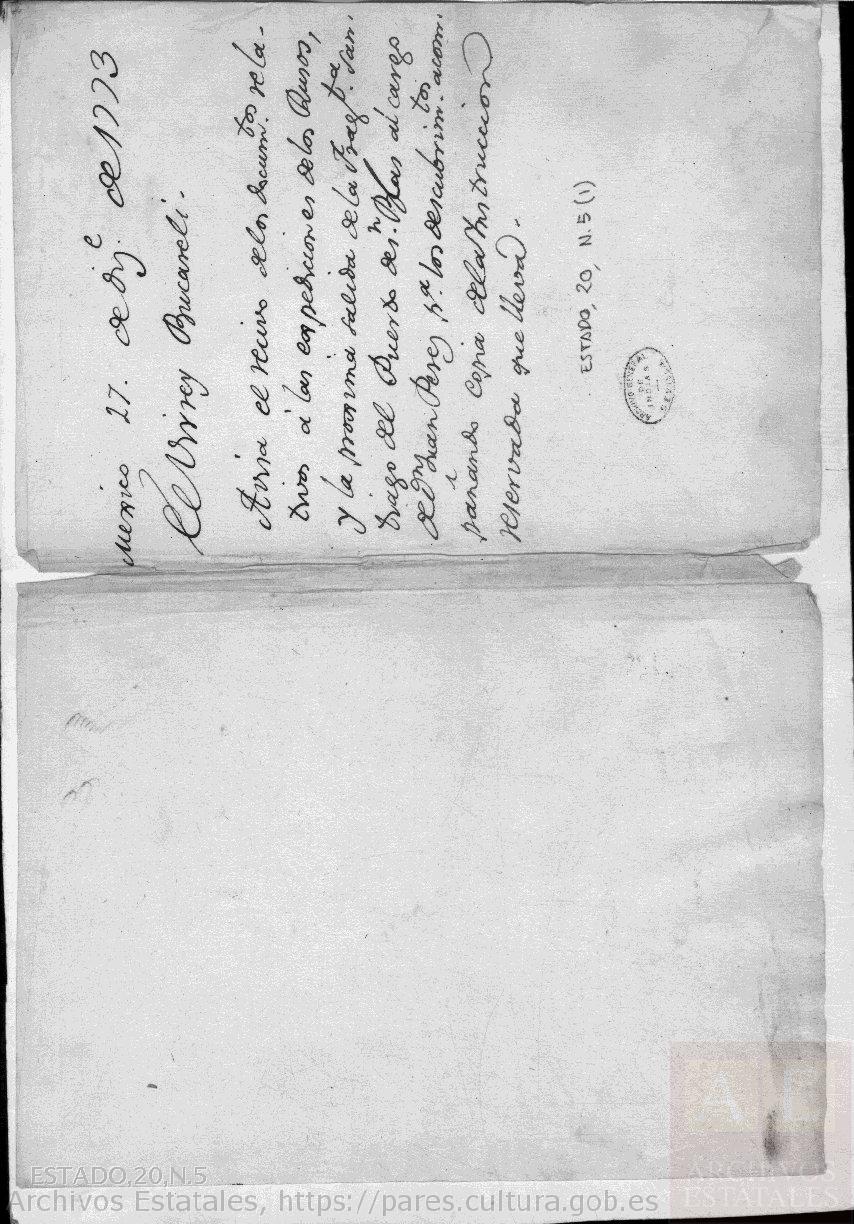 Mexico 27. de Diz.e de 1773
El Virrey Bucareli.
Avisa el recivo de los docum.tos rela-
tivos á las expediciones de los Rusos,
y la proxima salida de la Frag.ta San-
tiago del Puerto de S.n Blas al cargo
de D.n Juan Perez p.a los descubrim.tos acom-
pañando copia de la Instruccion
reservada que lleva.
ESTADO, 20, N.5(1)
ARCHIVO GENERAL
DE
INDIAS
SEVILLA
ESTADO,20,N.5
Archivos Estatales, https://pares.cultura.gob.es
AE
ARCHIVOS
ESTATALES